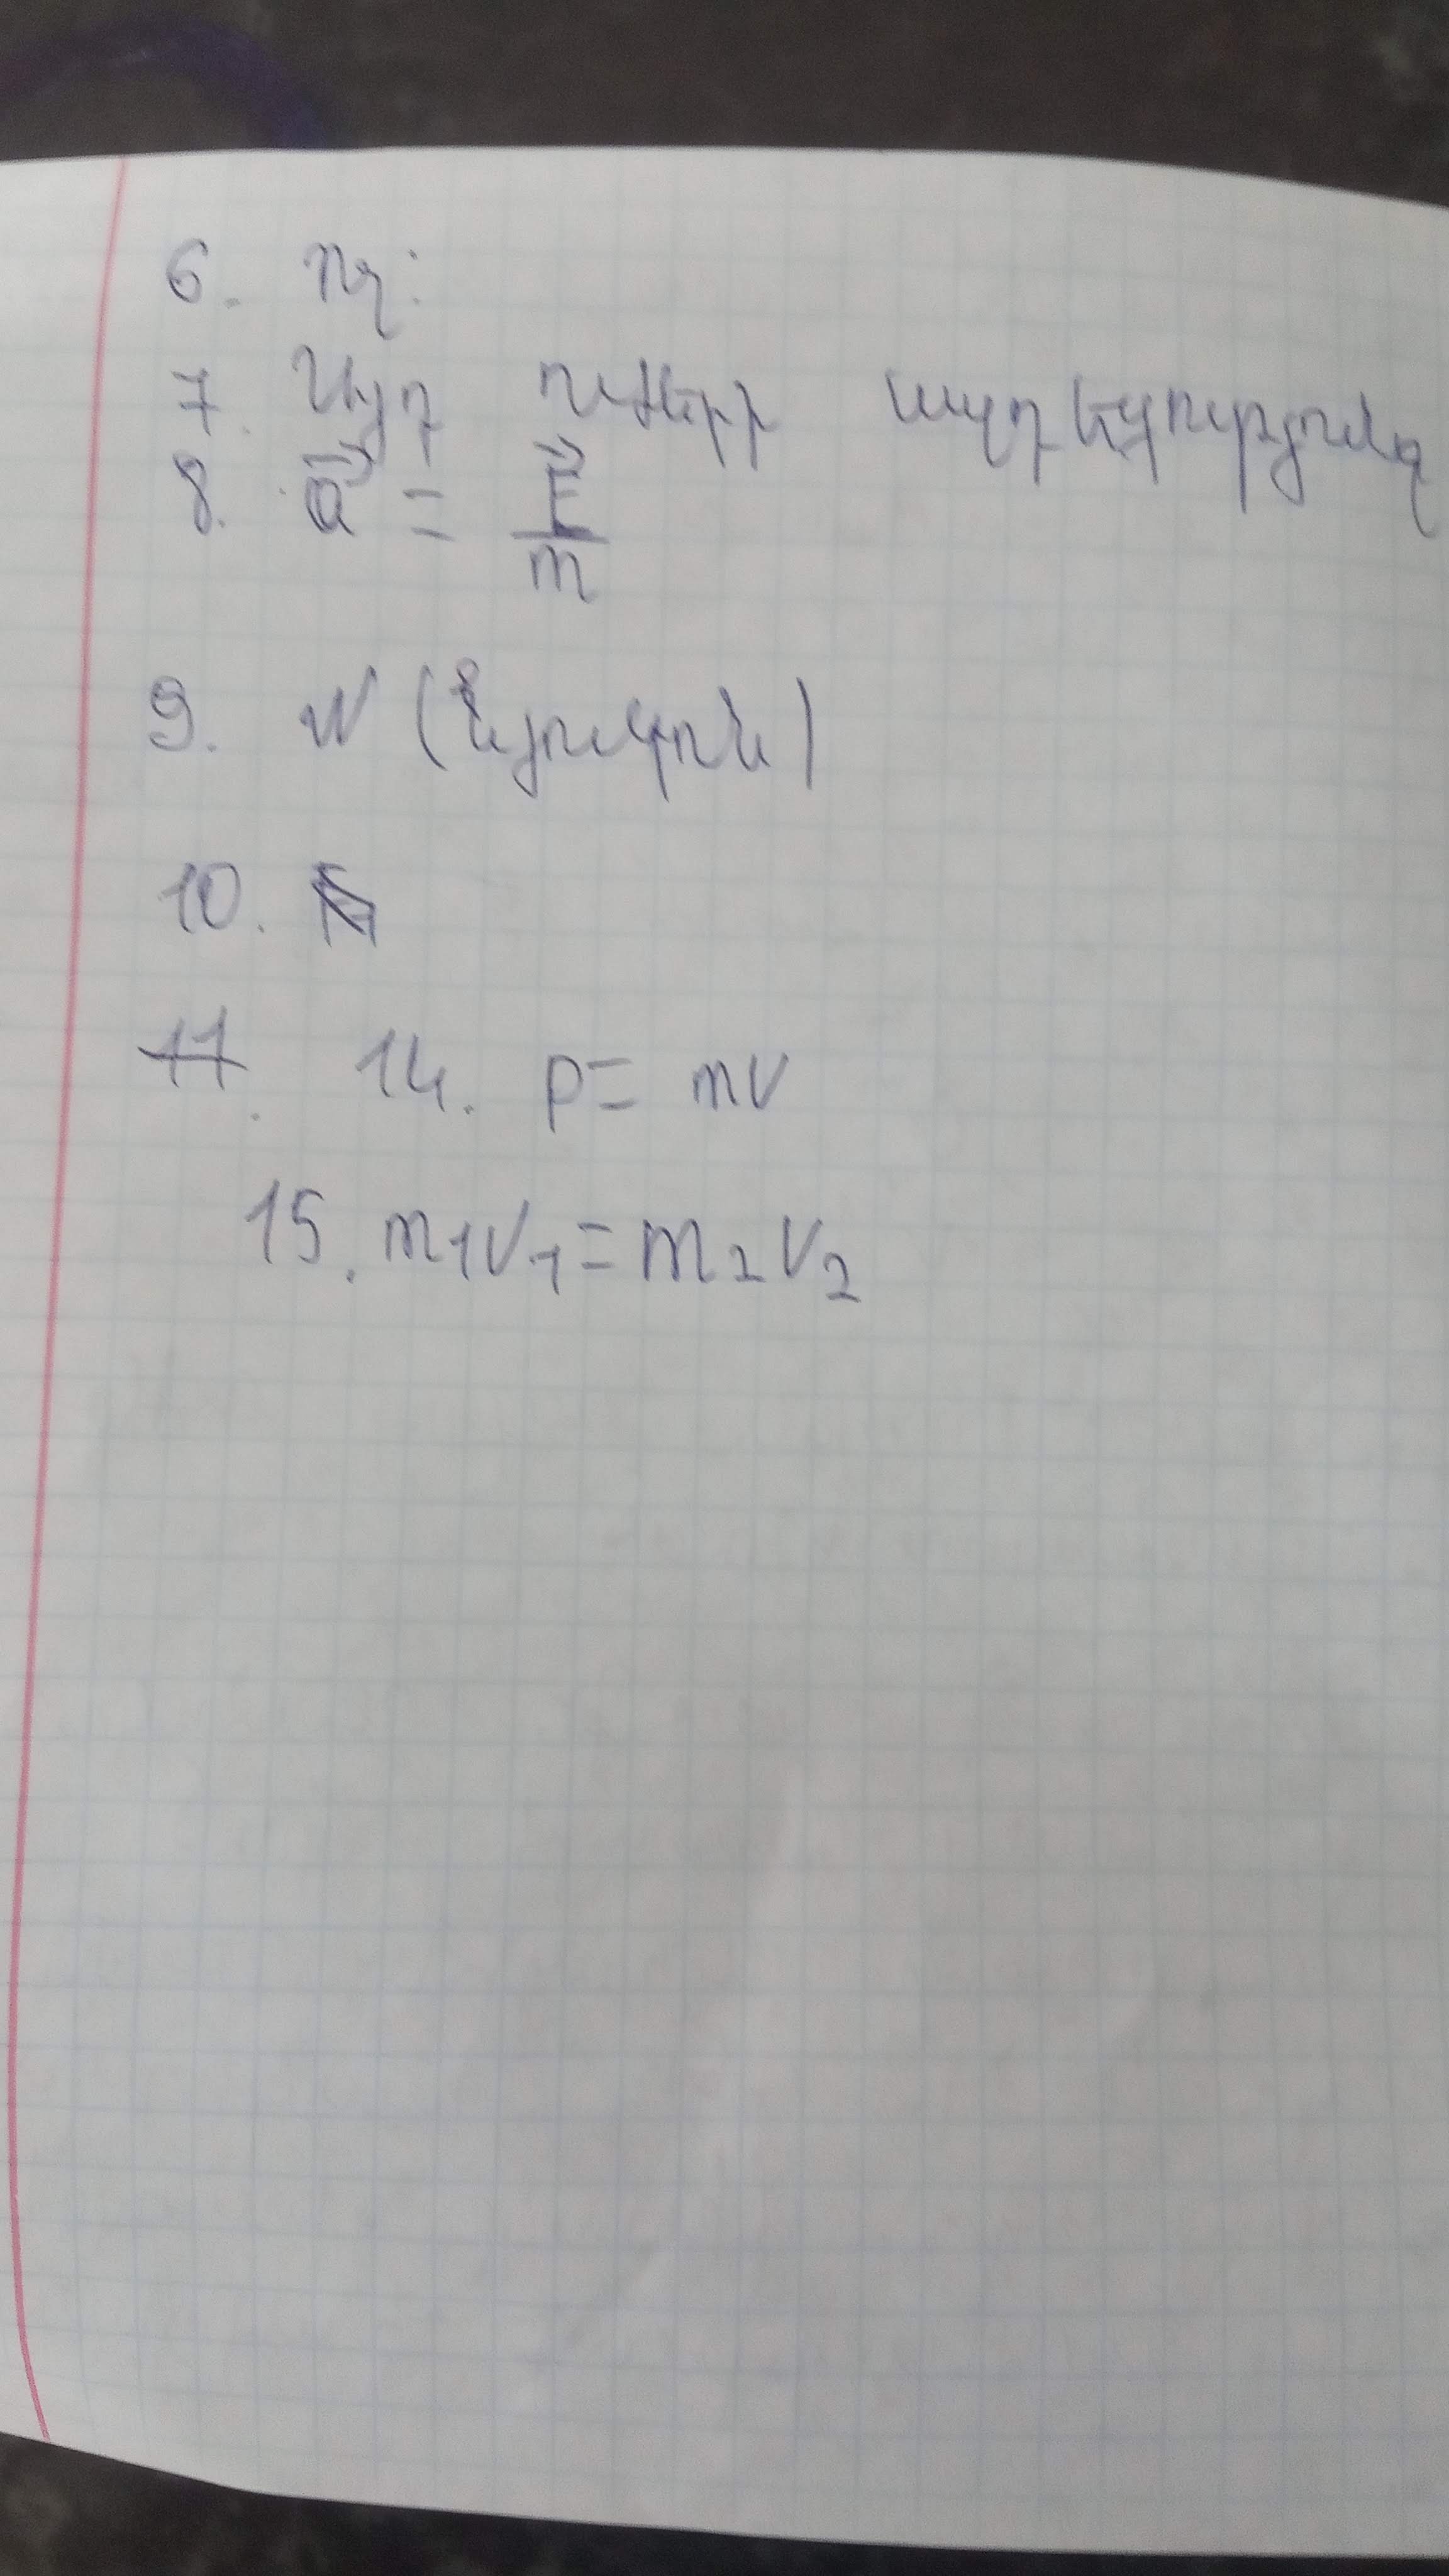 6. ոչ:
7. Այդ ուժերի ազդեցությունը
8. a⃗ = F⃗/m
9. N (Նյուտոն)
10.
11. 14. p = mv
15. m₁v₁ = m₂v₂